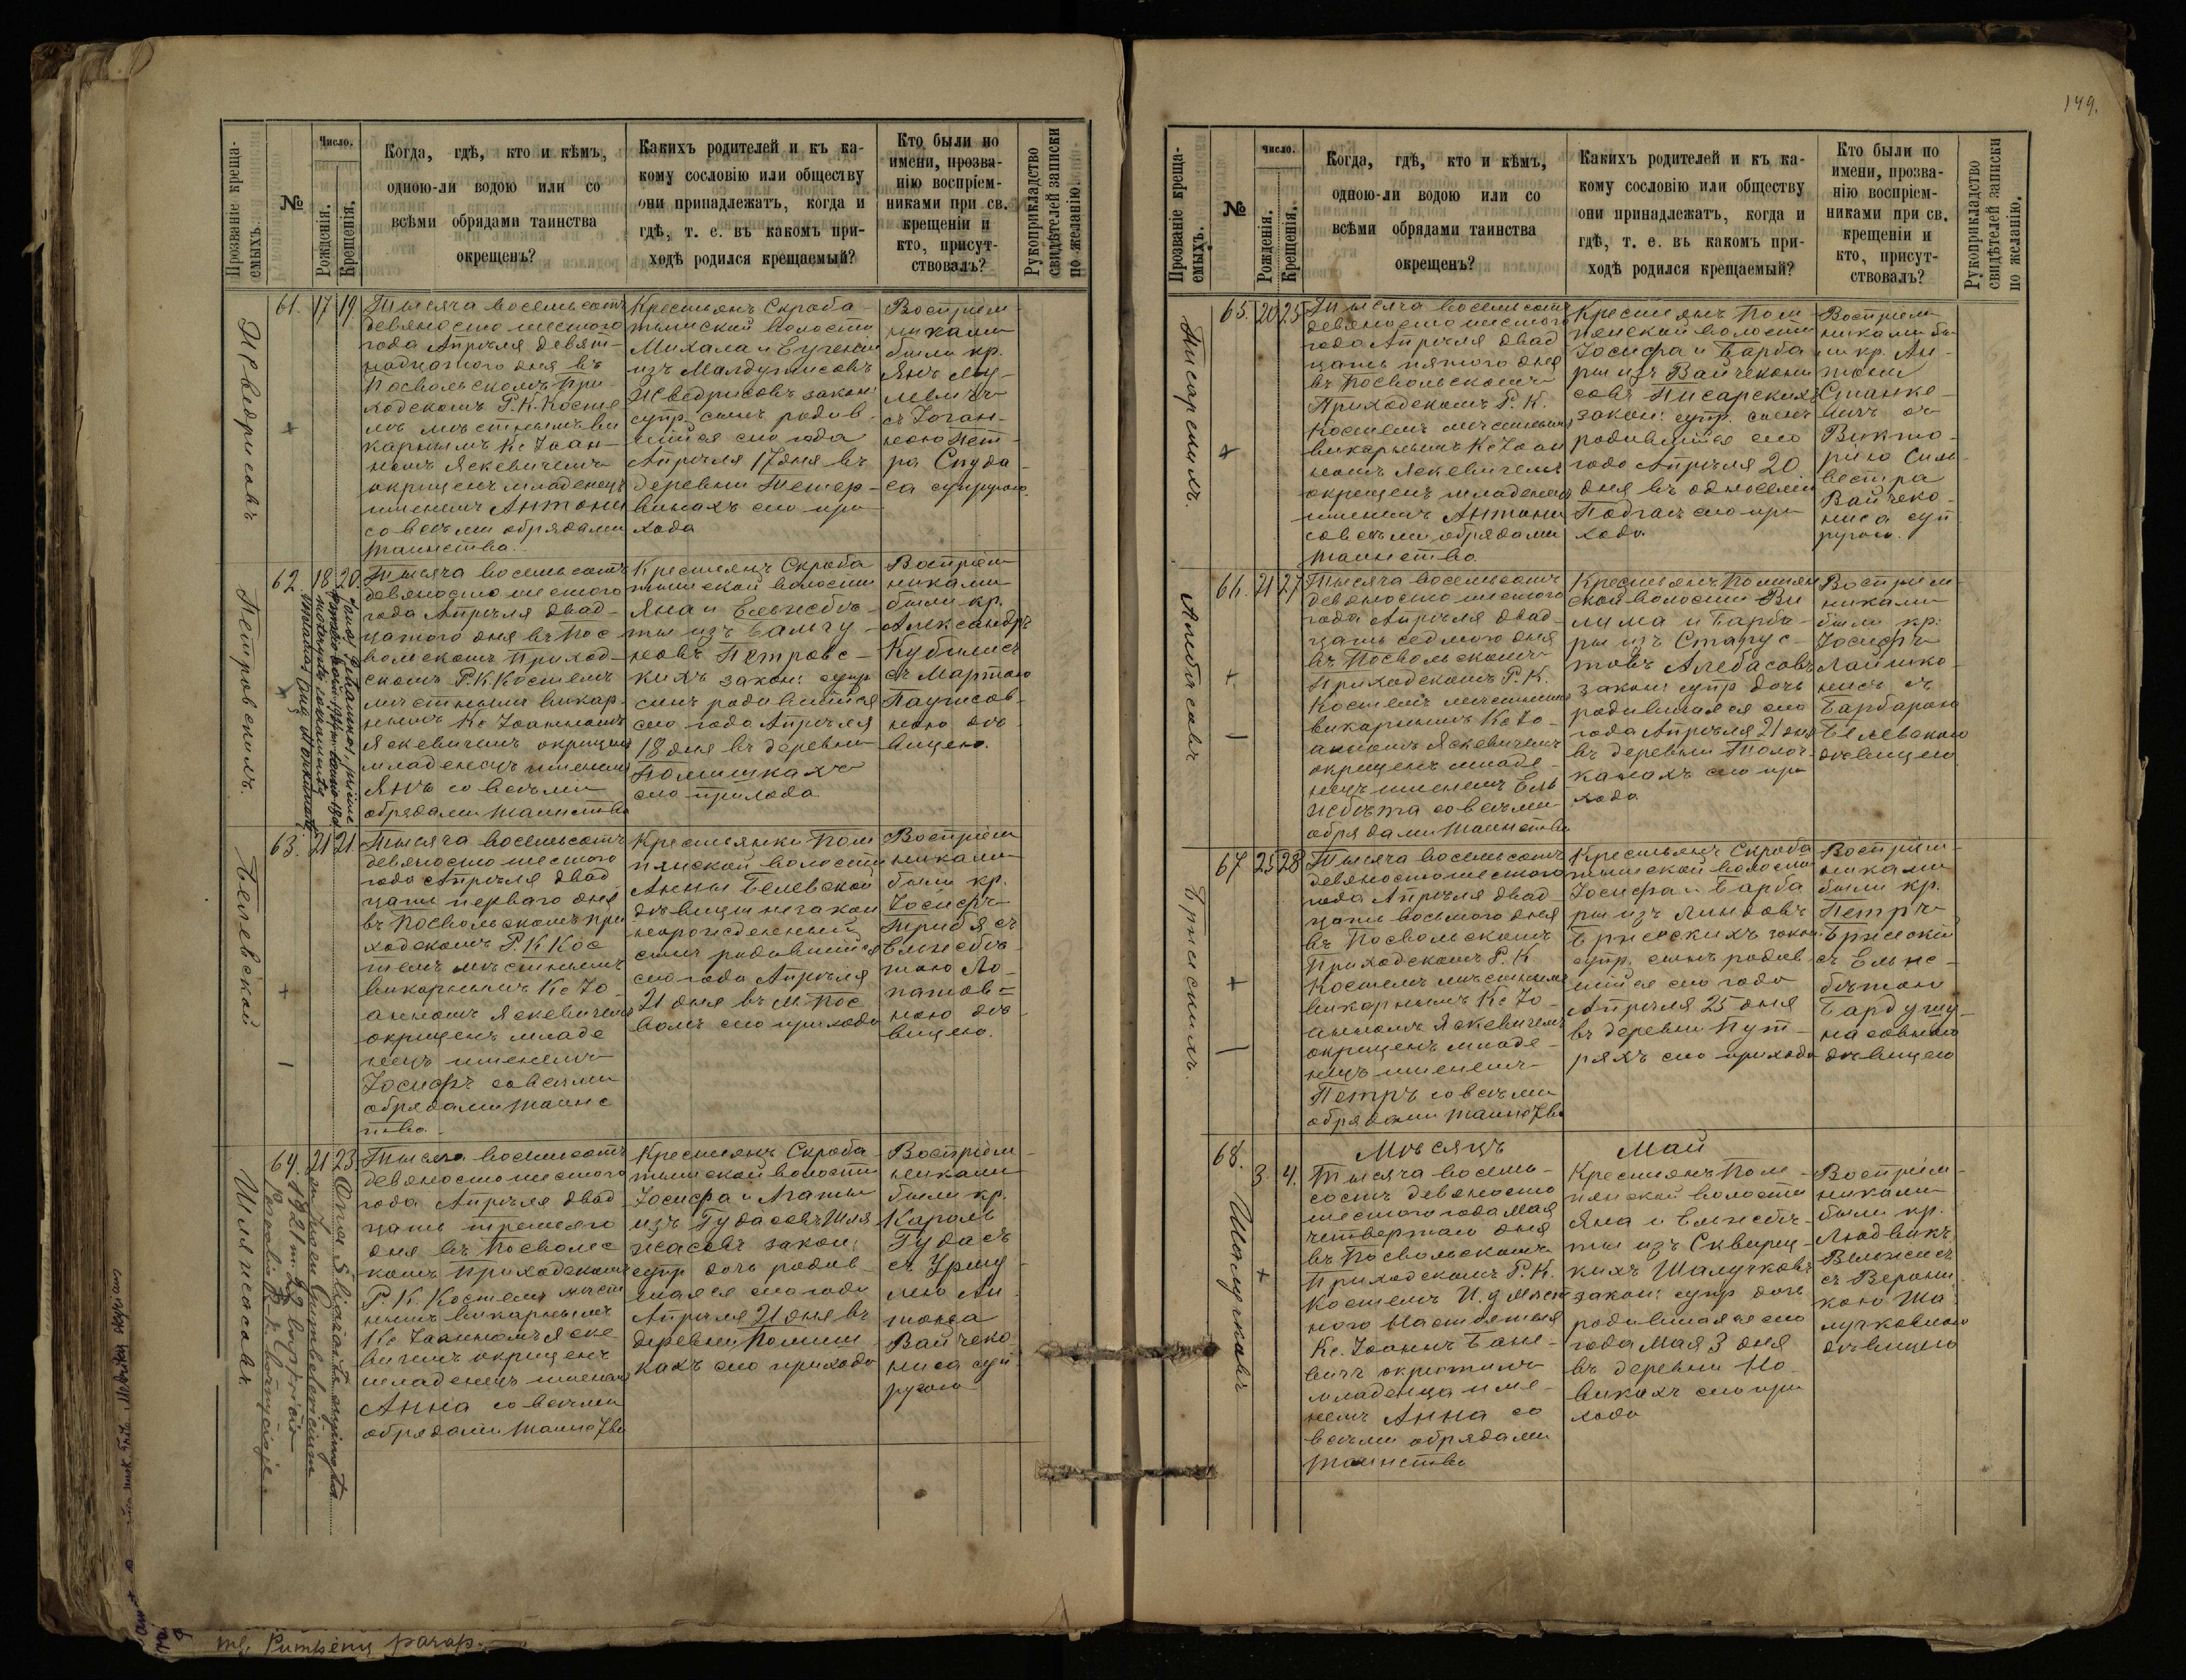 149.
Прозваніе креща-
емыхъ.
№
Число.
Рожденія.
Крещенія.
Когда, гдѣ, кто и кѣмъ,
одною-ли водою или со
всѣми обрядами таинства
окрещенъ?
Какихъ родителей и къ ка-
кому сословію или обществу
они принадлежатъ, когда и
гдѣ, т. е. въ какомъ при-
ходѣ родился крещаемый?
Кто были по
имени, прозва-
нію воспріем-
никами при св.
крещеніи и
кто, присут-
ствовалъ?
Рукоприкладство
свидѣтелей записки
по желанію.
61. 17 19
Тысяча восемьсотъ
девяносто шестого
года Апрѣля девят-
надцатого дня въ
Посвольскомъ При-
ходскомъ Р. К. Косте
лѣ мѣстнымъ ви
карнымъ Кс Іоан-
номъ Яскевичемъ
окрещенъ младенецъ
именемъ Антоній
со всѣми обрядами
таинства.
Крестьянъ Скроба-
тышской волости
Михала и Евгеніи
изъ
законн:
супр. сынъ родив-
шійся сего года
Апрѣля 17 дня въ
деревни Тетер-
винахъ сего при-
хода
Воспріем-
никами
были кр.
Янъ
съ Іоган-
ною Пет-
ра Спуда-
са супругою.
Петровскихъ.
62 18 20
Тысяча восемьсотъ
девяносто шестого
года Апрѣля двад-
цатого дня въ Пос
вольскомъ Приход-
скомъ Р. К. Костелѣ
мѣстнымъ викар-
нымъ Кс Іоанномъ
Яскевичемъ окрещенъ
младенецъ именемъ
Янъ со всѣми
обрядами таинства
Крестьянъ Скроба
тышской волости
Яна и Ельжбѣ-
ты изъ Бальчу-
новъ Петровс-
кихъ закон: супр
сынъ родившійся
сего года Апрѣля
18 дня въ деревни
Помишкахъ
сего прихода
Воспріем
никами
были кр.
Александръ
Кубилисъ
съ Мартою
ною дѣ-
вицею.
Белевской
63. 21 21
Тысяча восемьсотъ
девяносто шестого
года Апрѣля двад
цать перваго дня
въ Посвольскомъ При
ходскомъ Р. К Кос
телѣ мѣстнымъ
викарнымъ Кс Іо-
анномъ Яскевичемъ
окрещенъ младе
нецъ именемъ
Іосифъ со всѣми
обрядами таинс
тва.
Крестьянки Пом
пянской волости
Анны Белевской
дѣвицы незакон
норожденный
сынъ родившійся
сего года Апрѣля
21 дня въ м. Пос
волѣ сего прихода
Воспріем-
никами
были кр.
Іосифъ
Трибя съ
Ельжбѣ-
тою Ло-
патов=
ною дѣ-
вицею.
64. 21 23
Тысяча восемьсотъ
девяносто шестого
года Апрѣля двад
цать третьяго
дня въ Посвольс
комъ Приходскомъ
Р. К. Костелѣ мѣст
нымъ викарнымъ
Кс Іоанномъ Яске
вичемъ окрещенъ
младенецъ именемъ
Анна со всѣми
обрядами таинства
Крестьянъ Скроба-
тышской волости
Іосифа и Агаты
изъ Гудасовъ Шля
жасовъ закон:
супр дочь родив-
шаяся сего года
Апрѣля 21 дня въ
деревни Помиш
кахъ сего прихода
Воспріем-
никами
были кр.
Кароль
Гудасъ
съ Уршу-
лею Ан-
тона
Вайчеко
ниса суп
ругою
Писарскихъ.
65. 20 25
Тысяча восемьсотъ
девяносто шестого
года Апрѣля двад
цать пятого дня
въ Посвольскомъ
Приходскомъ Р. К.
Костелѣ мѣстнымъ
викарнымъ Кс Іоан
номъ Яскевичемъ
окрещенъ младенецъ
именемъ Антоній
со всѣми обрядами
таинства.
Крестьянъ Пом
пянской волости
Іосифа и Барба
ры изъ Вайчекони
совъ Писарскихъ
закон: супр. сынъ
родившійся сего
года Апрѣля 20
дня въ односеліи
сего при-
хода.
Воспріем-
никами бы
ли кр. Ан-
тоній
Станке-
вичъ съ
Викто-
ріею Силь
вестра
Вайчеко-
ниса суп
ругою.
Алебасовъ
66. 21 27
Тысяча восемьсотъ
девяносто шестого
года Апрѣля двад-
цать седмого дня
въ Посвольскомъ
Приходскомъ Р. К.
Костелѣ мѣстнымъ
викарнымъ Кс Іо-
анномъ Яскевичемъ
окрещенъ младе-
нецъ именемъ Ель
жбѣта со всѣми
обрядами таинства
Крестьянъ Помпян
ской волости Ви
лима и Барба-
ры изъ Стапус-
товъ Алебасовъ
закон: супр дочь
родившаяся сего
года Апрѣля 21 дня
въ деревни
сего при
хода
Воспріем-
никами
были кр:
Іосифъ
нисъ съ
Барбарою
Белевскою
дѣвицею
67 25 28
Тысяча восемьсотъ
девяносто шестого
года Апрѣля двад-
цать восьмого дня
въ Посвольскомъ
Приходскомъ Р. К
Костелѣ мѣстнымъ
викарнымъ Кс Іо-
анномъ Яскевичемъ
окрещенъ младе-
нецъ именемъ
Петръ со всѣми
обрядами таинства
Крестьянъ Скроба
тышской волости
Іосифа и Барба
ры изъ Линдовъ
закон
супр. сынъ родив-
шійся сего года
Апрѣля 25 дня
въ деревни Пут-
ряхъ сего прихода
Воспріем-
никами
были кр.
Петръ
съ Ельж-
бѣтою
дѣвицею
Шалучковъ
68. 3. 4.
Мѣсяцъ Май
Тысяча восемь-
сотъ девяносто
шестого года Мая
четвертаго дня
въ Посвольскомъ
Приходскомъ Р. К.
Костелѣ И. д мѣст
ного Настоятеля
Кс. Іоаннъ Бане-
вичъ окрестилъ
младенца име-
немъ Анна со
всѣми обрядами
таинства
Крестьянъ Пом-
пянской волости
Яна и Ельжбѣ-
ты изъ Сквирц-
кихъ Шалучковъ
закон: супр дочь
родившаяся сего
года Мая 3 дня
въ деревни Но-
викахъ сего при
хода
Воспріем-
никами
были кр.
Людвикъ
съ Верони
кою Ша-
лучковною
дѣвицею
mg. Pumpėnų parap.